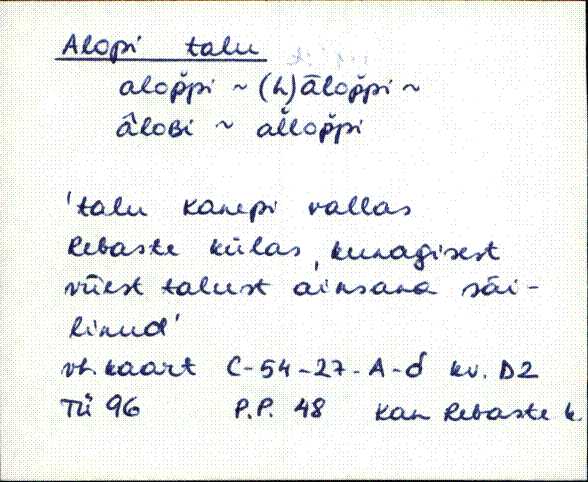 Alopi talu
alop̆pi ~ (h)ālop̆pi ~
âloʙi ~ al̆lop̆pi
'talu Kanepi vallas
Rebaste külas, kunagisest
viiest talust ainsana säi-
linud'
vt. kaart C-54-27-A-d kv. D2
TÜ 96 P.P. 48 Kan Rebaste k.